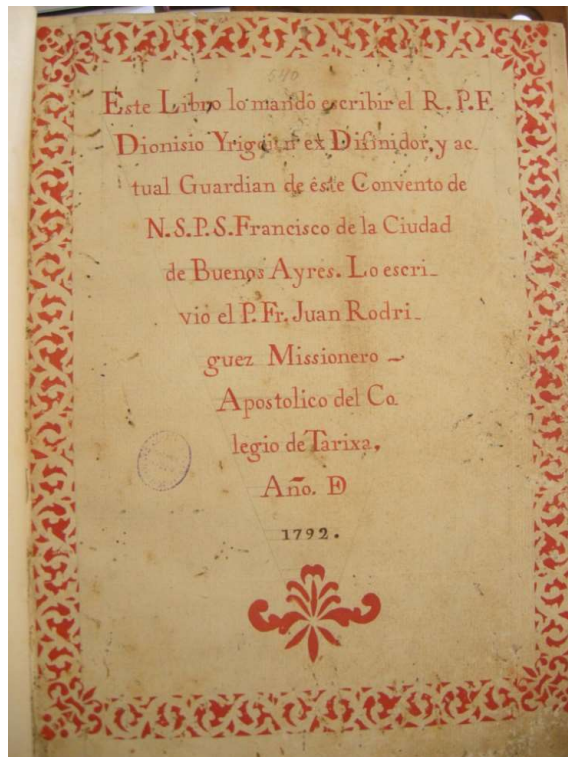 540
Este Libro lo mandó escribir el R. P. F.
Dionisio ex Difinidor, y ac_
tual Guardian de éste Convento de
N. S. P. S. Francisco de la Ciudad
de Buenos Ayres. Lo escri_
vió el P. Fr. Juan Rodri_
guez Missionero
Apostolico del Co_
legio de Tarixa,
Año. D
1792.